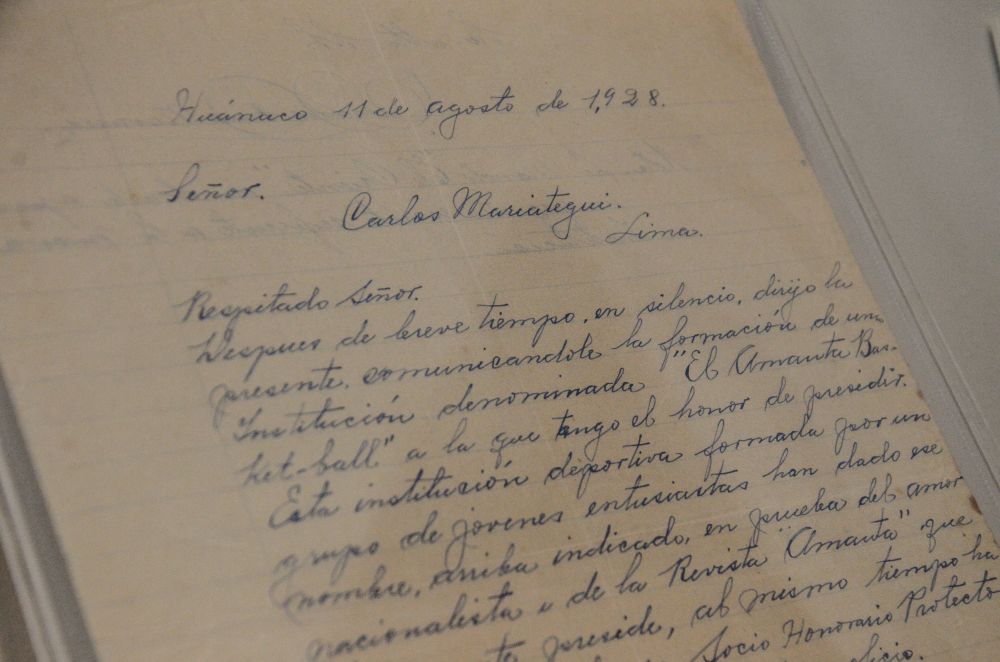 Huánuco 11 de agosto de 1,928.
Señor.
Carlos Mariátegui.
Lima.
Respitado Señor.
Despues de breve tiempo, en silencio, dirijo la
presente, comunicandole la formación de una
Institución denominada "El Amauta Bas-
ket-ball" a la que tengo el honor de presidir.
Esta institución deportiva formada por un
grupo de jovenes entusiastas han dado ese
nombre, arriba indicado, en prueba del amor
nacionalista e de la Revista "Amauta" que
preside, al mismo tiempo ha
Socio Honorario Protecto